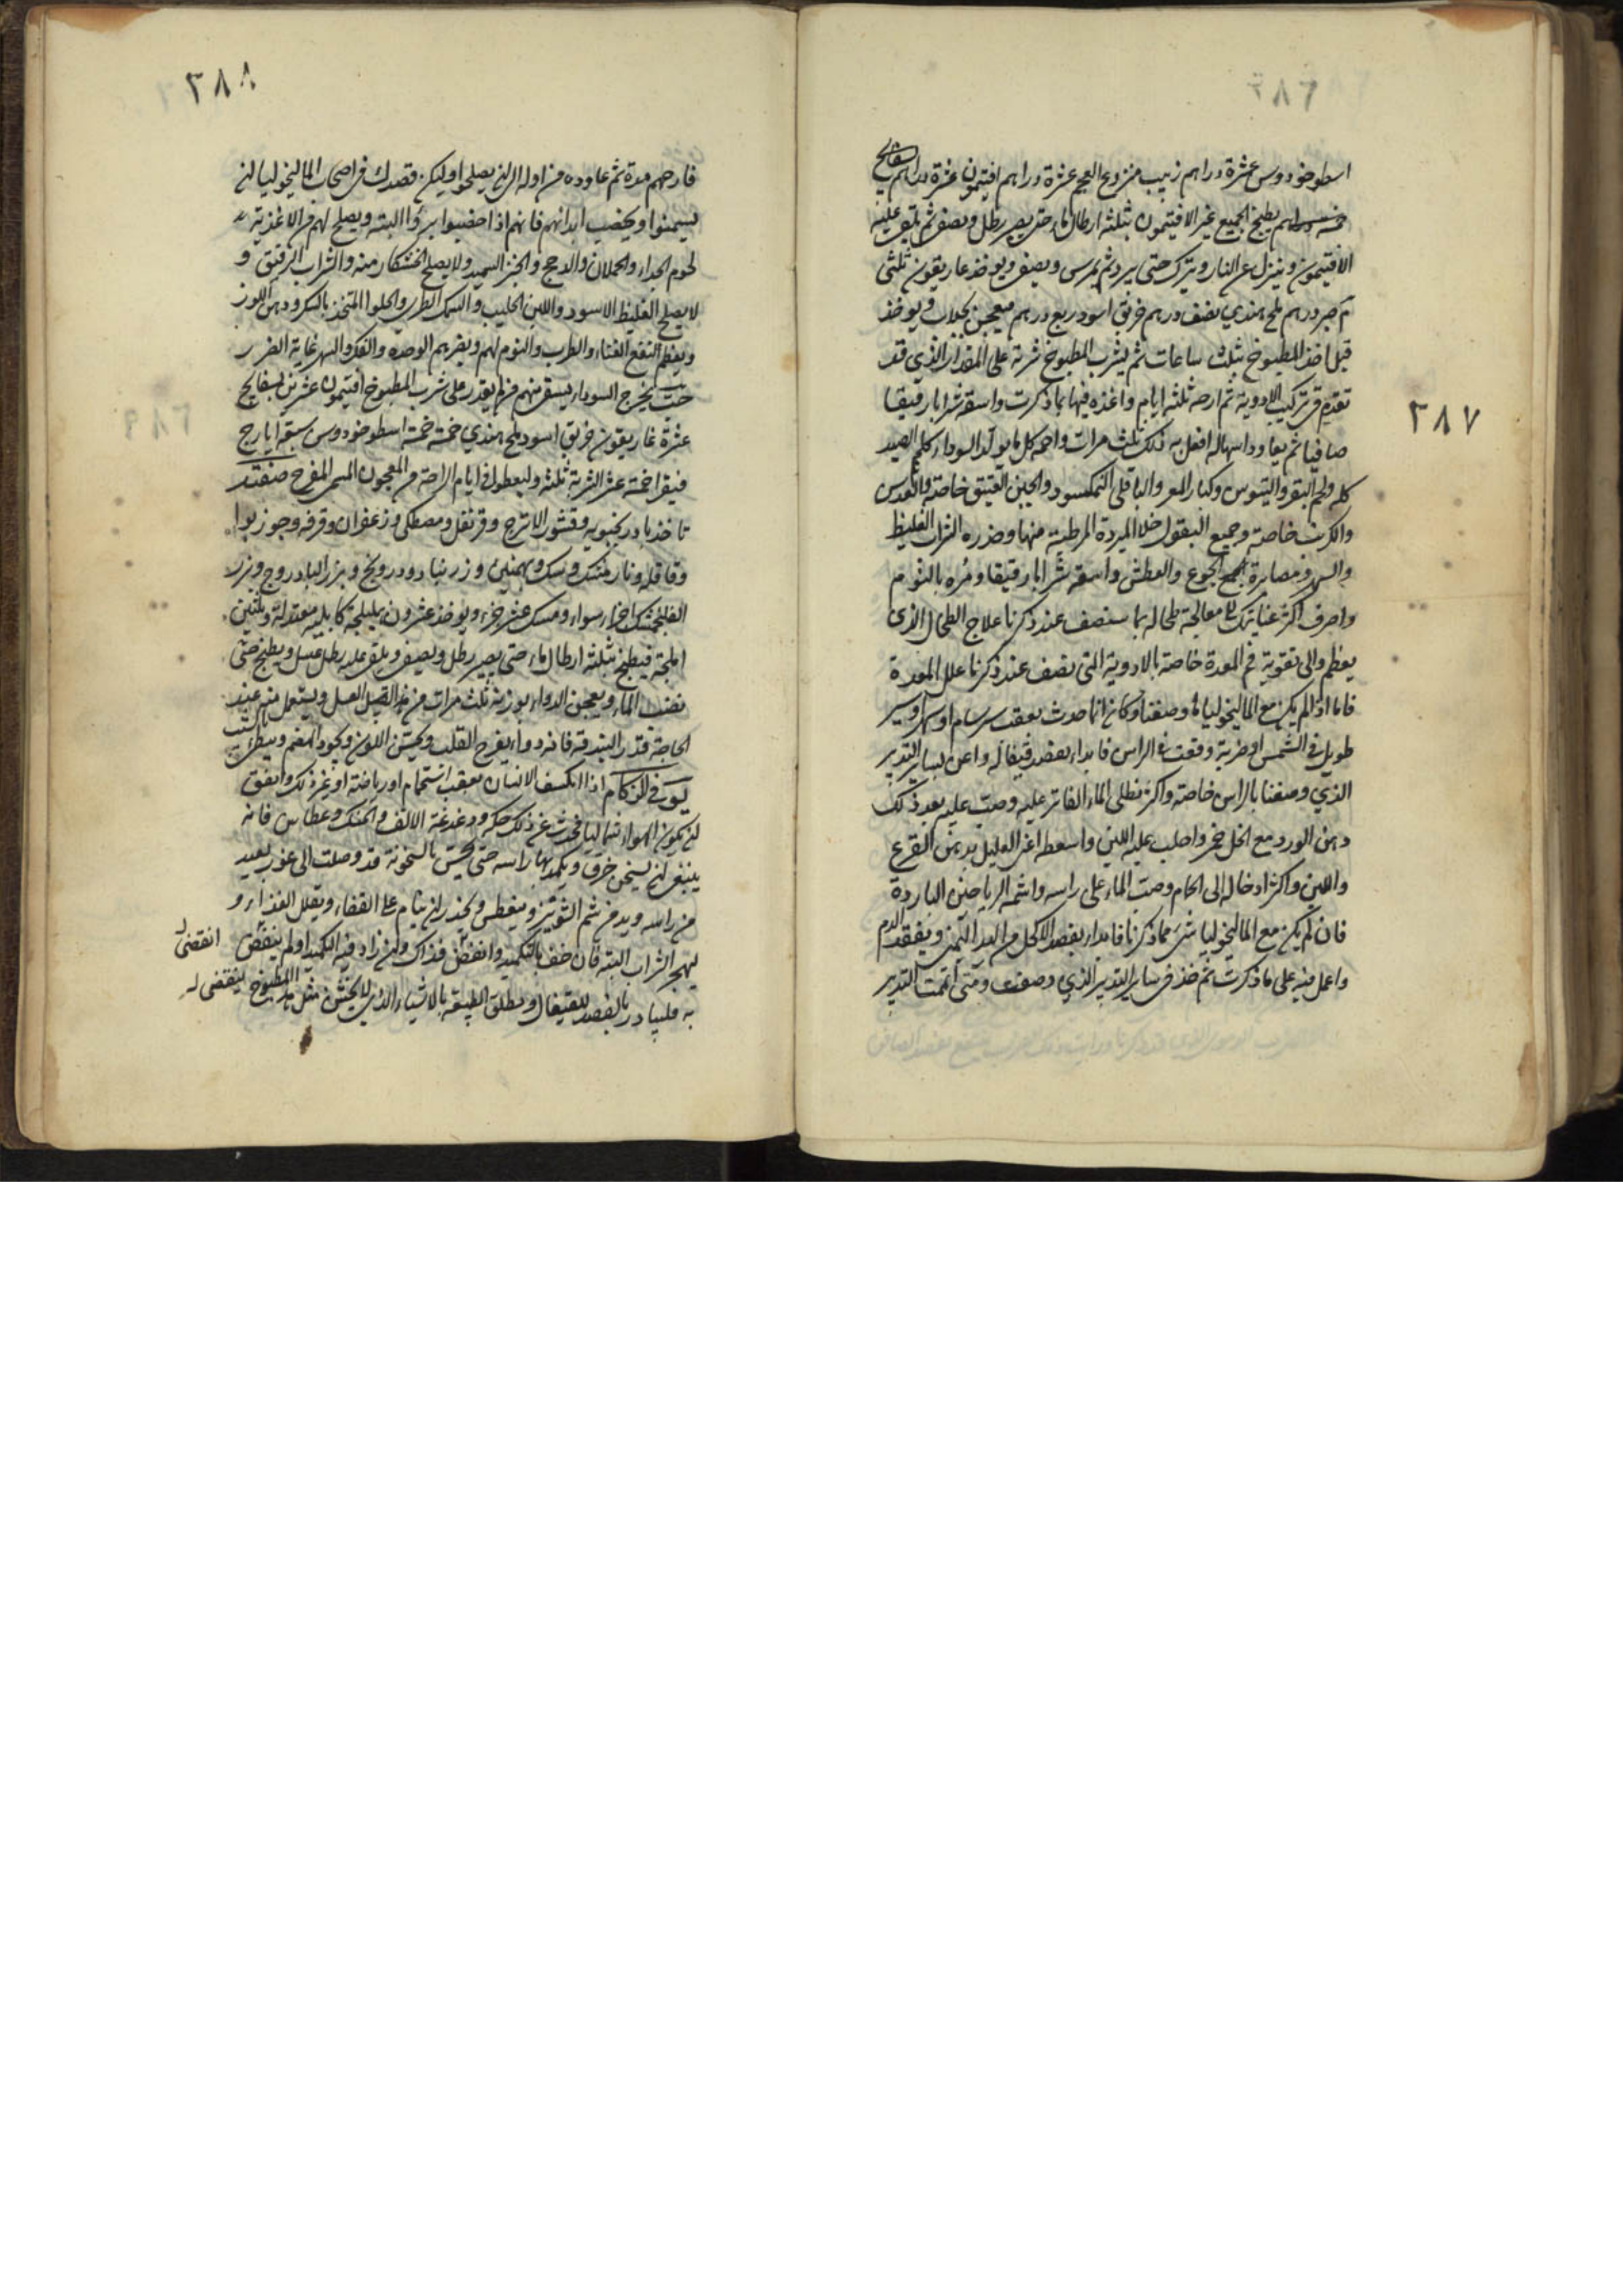 ٢٨٧
اسطوخودوس عشرة دراهم زبيب منزوع العجم عشرة دراهم افتيمون عشرة دراهم بسفايج
خمسة دراهم يطبخ الجميع غير الافتيمون بثلثة ارطال ماء حتى يصير رطل ونصف ثم يلقى عليه
الافتيمون وينزل عن النار ويترك حتى يبرد ثم يمرس ويصفى ويوخذ غاريقون ثلثى
درهم ملح هندي نصف درهم خربق اسود ربع درهم معجن بجلاب ويوخذ
قبل اخذ المطبوخ بثلث ساعات ثم يشرب المطبوخ شربة على المقدار الذي قد
تقدم في تركيب الادوية ثم ارحه ثلثة ايام واغذه فيها بما ذكرت واسقه شرابا رقيقا
صافيا ثم يعاود اسهاله افعل به ذلك ثلث مرات واحمه كل ما يولد السوداء كلحم الصيد
كله ولحم البقر والتيوس وكبار المعز والباقلى النمكسود والجبن العتيق خاصة والعدس
والكرنب خاصة وجميع البقول خلا المبردة المرطبة منها وضرره الشراب الغليظ
والسهر ومصابرة الجوع والعطش واسقه شرابا رقيقا ومره بالنوم
واصرف اكثر عنايتك الى معالجة طحاله بما سنصف عند ذكرنا علاج الطحال الذى
يعظم والى تقوية فم المعدة خاصة بالادوية التى نصف عند ذكرنا علل المعدة
فاما اذا لم يكن مع الماليخوليا ما وصفنا وكان انما حدث بعقب سرسام او سهر او سير
طويل في الشمس او ضربة وقعت في الراس فابداء بفصد قيفاله واعن بساير التدبير
الذي وصفنا بالراس خاصة واكثر نطل الماء الفاتر عليه وصب عليه بعد ذلك
دهن الورد مع الخل خمر واحلب عليه اللبن واسعط اعني العليل بدهن القرع
واللبن واكثر ادخاله الى الحمام وصب الماء على راسه واشمه الرياحين الباردة
فان لم يكن مع الماليخوليا شئ مما ذكرنا فابداء بفصد الاكحل من اليد اليمنى وتفقد الدم
واعمل فيه على ما ذكرت ثم خذ في ساير التدبير الذي وصفت ومتى اتممت التدبير
٢٨٨
فارحهم مدة ثم عاوده من اوله الى ان يصلحوا وليكن قصدك في اصحاب الماليخوليا ان
يسمنوا ويخصب ابدانهم فانهم اذا اخصبوا برءوا البتة ويصلح لهم من الاغذية
لحوم الجداء والحملان والدجج والخبز السميد ولا يصلح الخشكار منه والشراب الرقيق و
لا يصلح الغليظ الاسود واللبن الحليب والسمك الطري والحلوا المتخذ بالسكر ودهن اللوز
ويعظم النفع الغناء والطرب والنوم لهم ويضرهم الوحدة والفكر والسهر غاية الضرر
حب يخرج السوداء يسقى منهم من لم يقدر على شرب المطبوخ افتيمون عشرين بسفايج
عشرة غاريقون خربق اسود ملح هندي خمسة خمسة اسطوخودوس سبعة ايارج
فيقرا خمسة عشر الشربة ثلثة وليعطوا في ايام الراحة من المعجون المسمى المفرح صنعته
تاخذ بادرنجبويه وقشور الاترج وقرنفل ومصطكى وزعفران وقرفه وجوزبوا
وقاقله ونارمشك وسك وبهمنين وزرنباد ودرونج وبزر البادروج وبزر
الفلنجمشك اجزاء سواء ومسك عشر جزء ويوخذ عشرون هليلجة كابلية معتدلة وثلثين
املجة فيطبخ بثلثة ارطال ماء حتى يصير رطل ويصفى ويلقى عليه رطل عسل ويطبخ حتى
نضب الماء ويعجن الدواء بوزنه ثلث مرات من هذا العسل ويستعمل منه عند
الحاجة قدر البندقة فانه دواء يفرح القلب ويحسن اللون ويجود الهضم ويبطئ بالشيب
في الزكام اذا انكسف الانسان بعقب استحمام او رياضة او غير ذلك واتفق
ان يكون الهواء شماليا فحدث عن ذلك حكه ودغدغة الانف والحنك وعطاس فانه
ينبغى ان يسخن خرق ويكمد بها راسه حتى يحس بالسخونة قد وصلت الى غور بعيد
من راسه ويدمن شم الشونيز ويغطس ويحذر ان ينام على القفاء ويقلل الغذاء و
ليهجر الشراب البتة فان خف بالتكميد وانقض فذاك وان زاد فيه التكميد او لم ينقص
انقضى
به فليبادر بالفصد للقيفال ويطلق الطبيعة بالاشياء الذي لا يخشن مثل هذا المطبوخ
لينقضى له